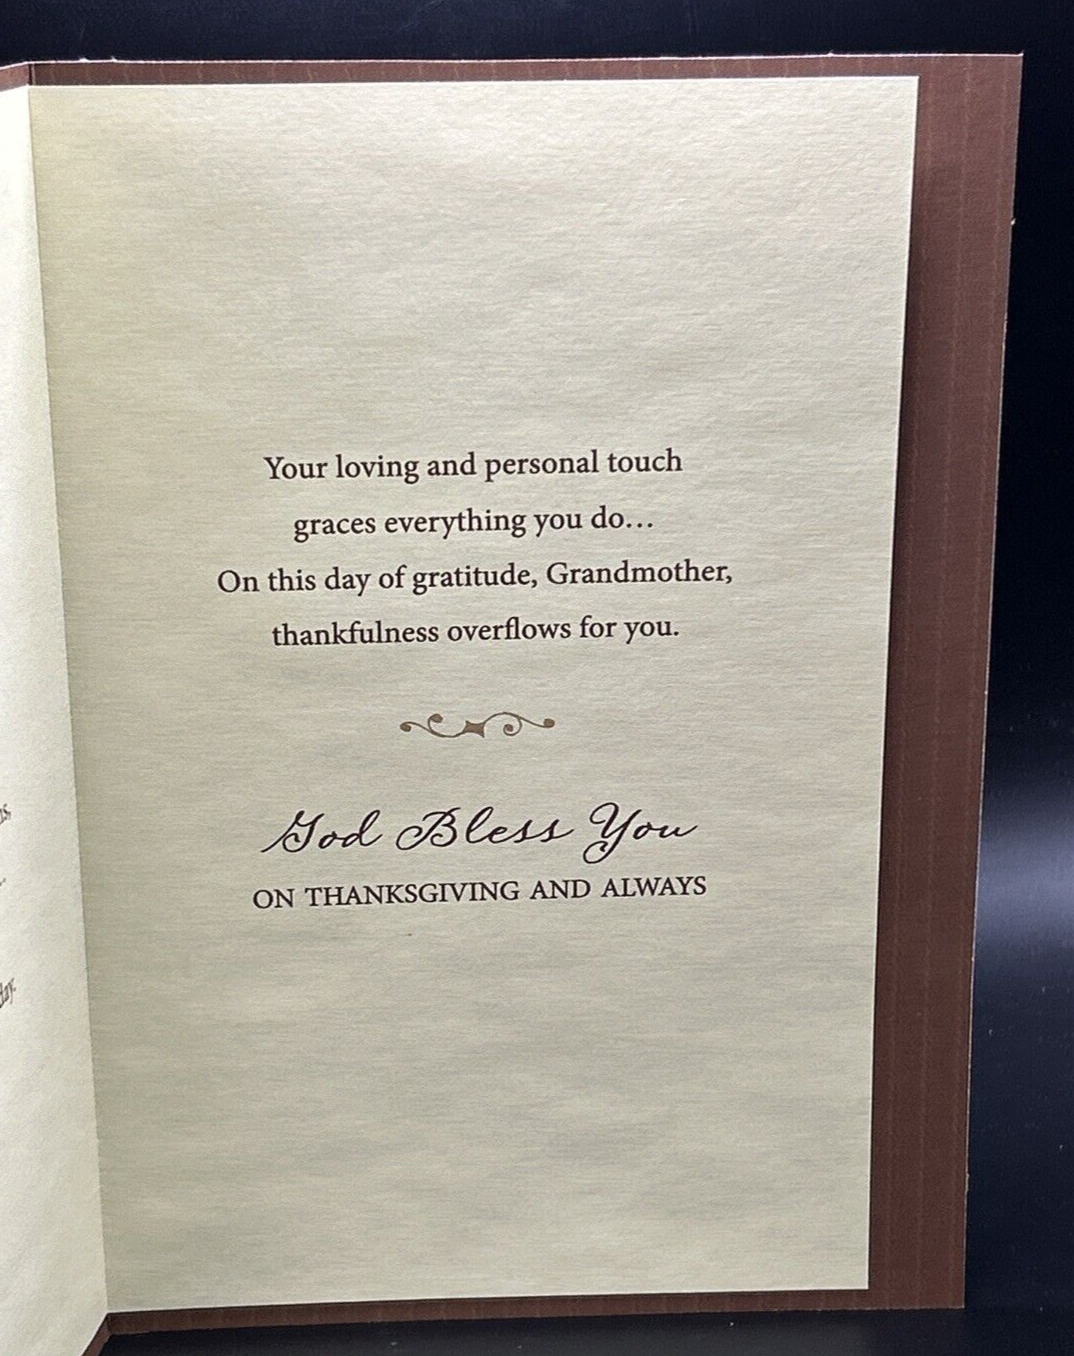 Your loving and personal touch
graces everything you do...
On this day of gratitude, Grandmother,
thankfulness overflows for you.
God Bless You
ON THANKSGIVING AND ALWAYS